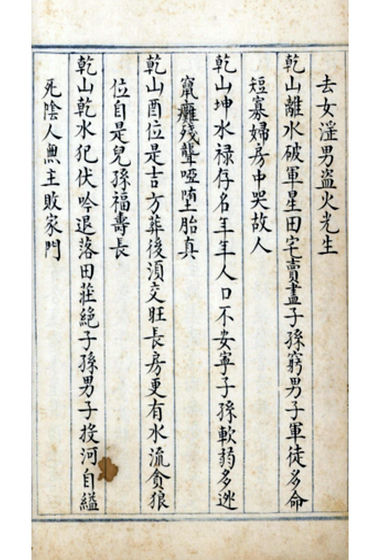 去女淫男盗火光生
乾山離水破軍星田宅賣盡子孫窮男子軍徒多命
短寡婦房中哭故人
乾山坤水禄存名年年人口不安寧子孫軟弱多逃
竄癱残聾啞墮胎真
乾山酉位是吉方葬後湏交旺長房更有水流貪狼
位自是兒孫福壽長
乾山乾水犯伏吟退落田莊絶子孫男子投河自縊
死陰人無主敗家門